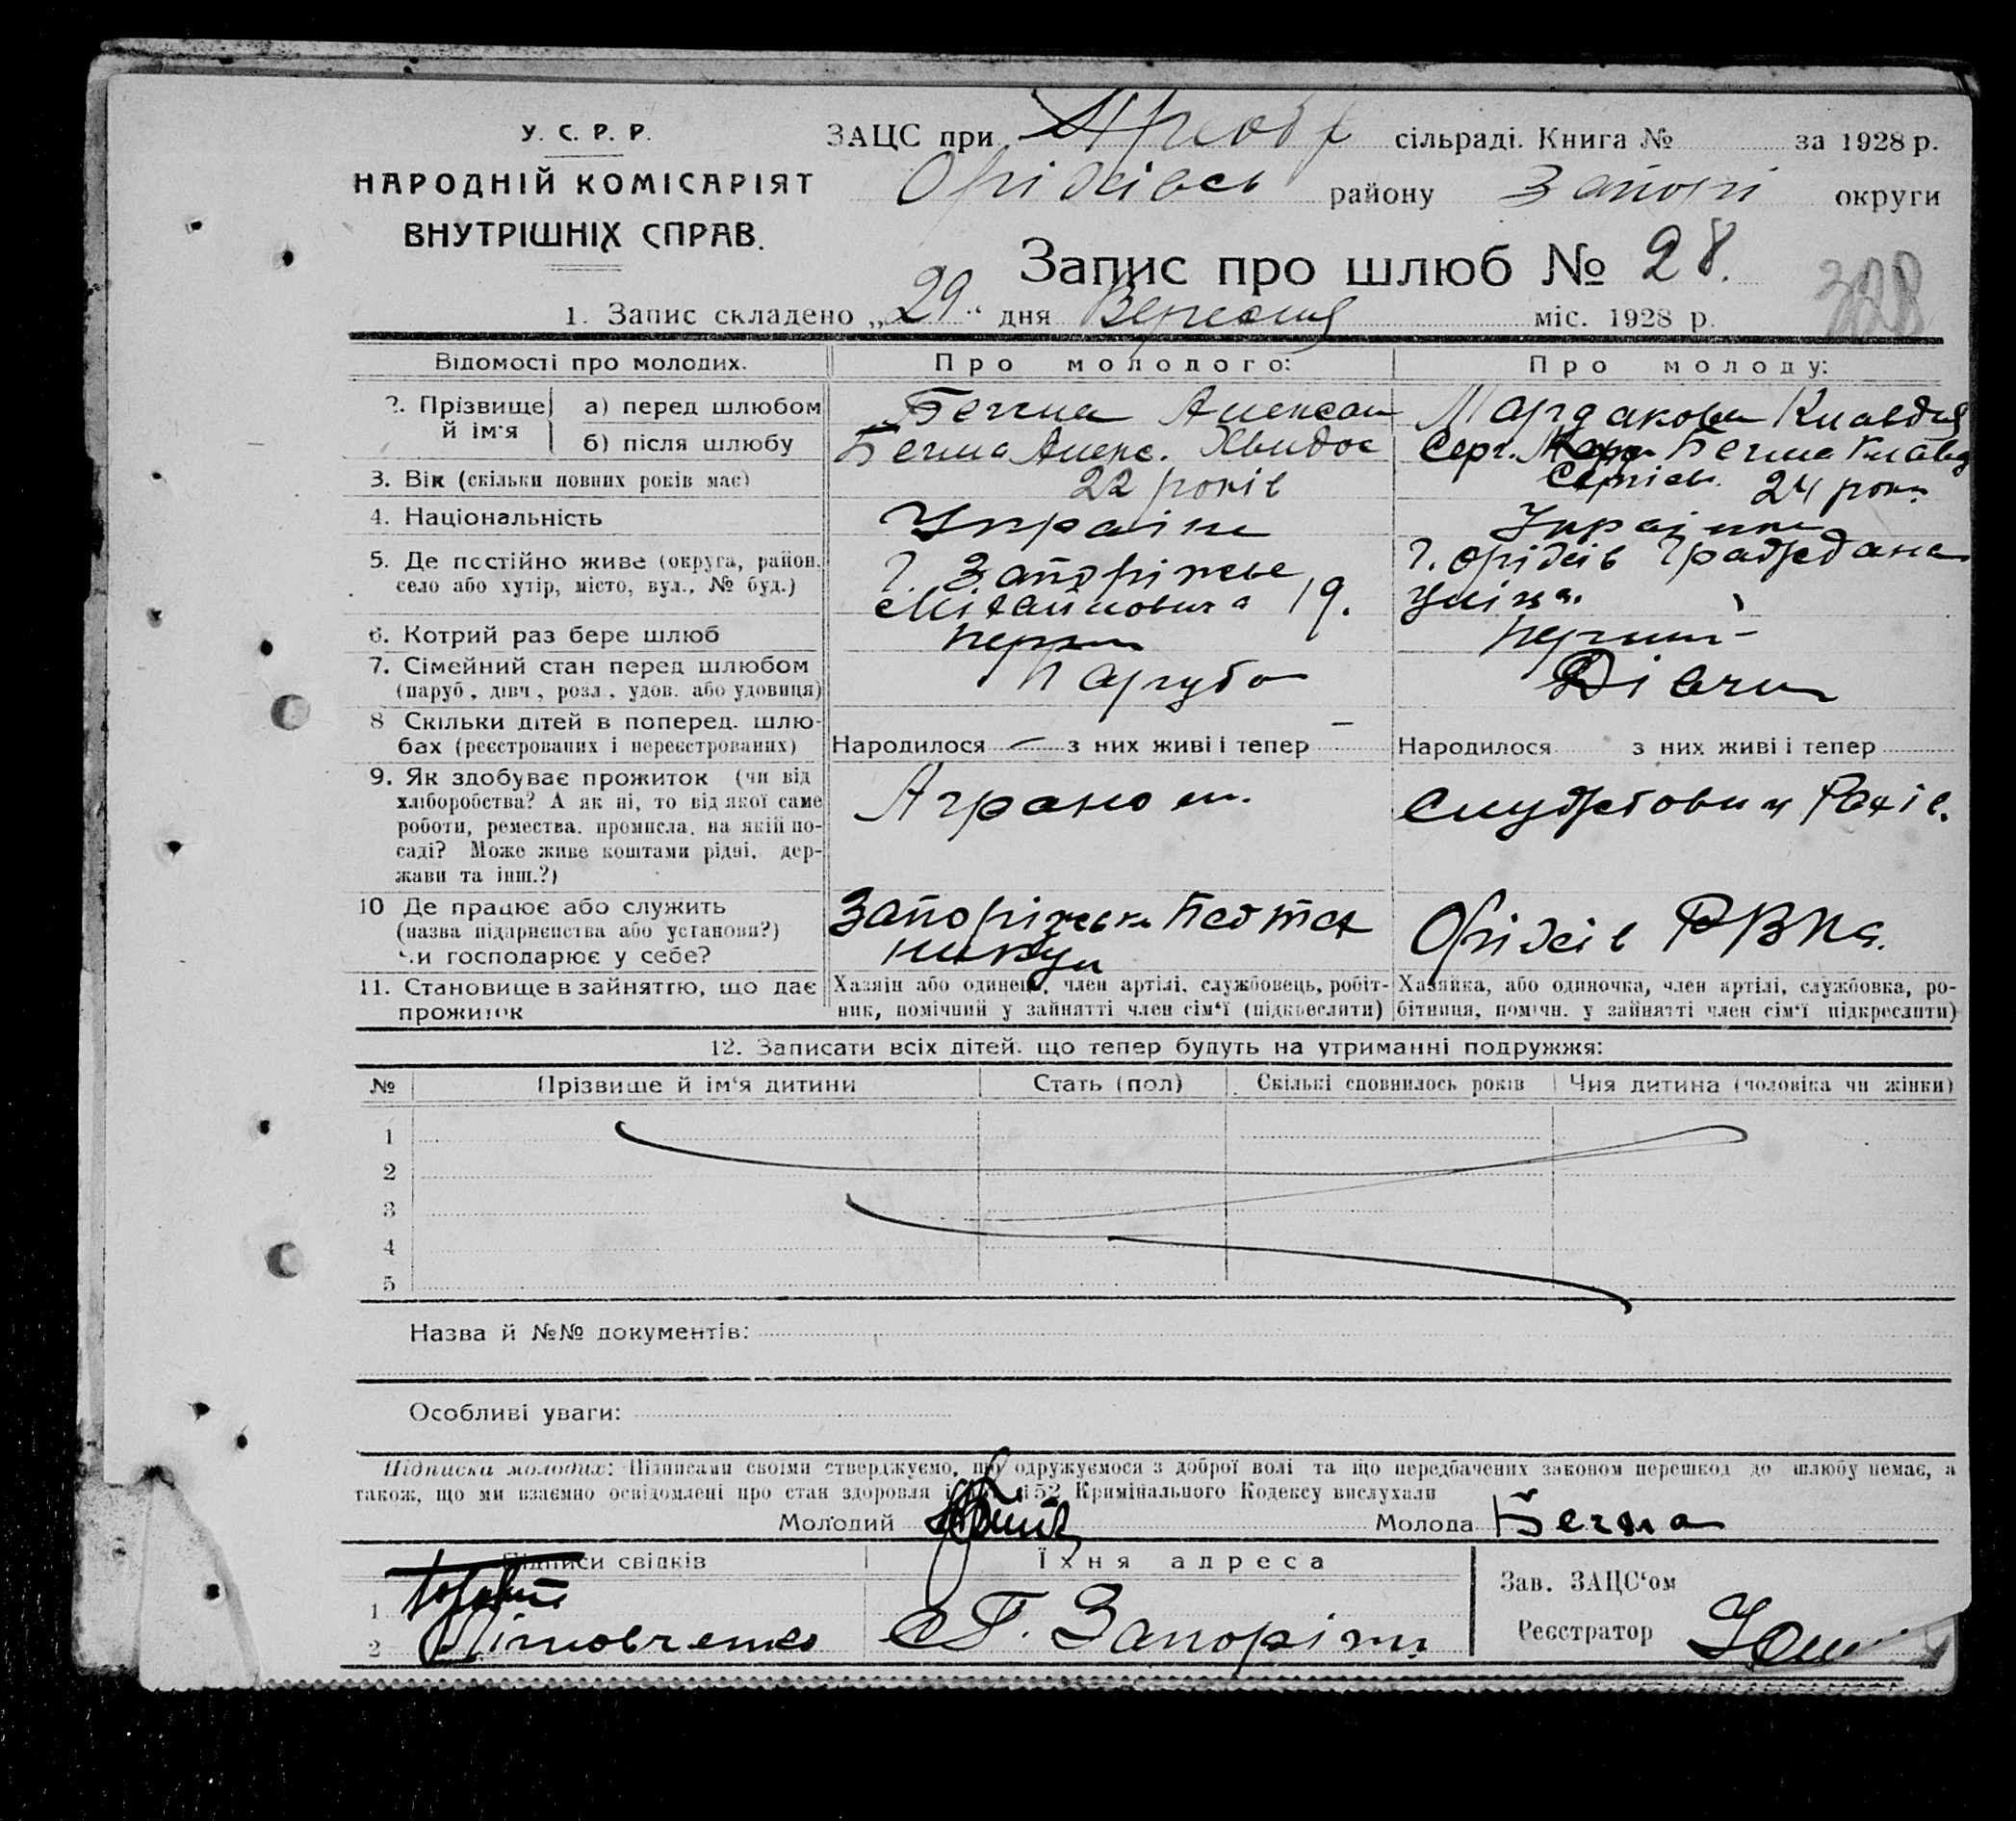 У. С. Р. Р.
НАРОДНІЙ КОМІСАРІЯТ
ВНУТРІШНІХ СПРАВ.
ЗАЦС при сільраді. Книга № за 1928 р.
Оріхівсь району Запорі округи
Запис про шлюб № 28.
328
1. Запис складено „29“ дня Вересня міс. 1928 р.
Відомості про молодих. Про молодого: Про молоду:
2. Прізвище й ім'я
а) перед шлюбом Бегма Алексан Мардакова Клавдія
б) після шлюбу Бегма Алекс. Хвидос Серг. Бегма Клавд
Сергієв.
3. Вік (скільки повних років має) 22 років 24 рок.
4. Національність Україн Українк
5. Де постійно живе (округа, район, село або хутір, місто, вул., № буд.)
г. Запоріжже 19.
г. Оріхів Граждане
уліца.
6. Котрий раз бере шлюб перш перший
7. Сімейний стан перед шлюбом Парубо Дівчи
(паруб., дівч., розл., удов. або удовиця)
8 Скільки дітей в поперед. шлюбах (реєстрованих і нереєстрованих)
Народилося — з них живі і тепер — Народилося з них живі і тепер
9. Як здобуває прожиток (чи від
хліборобства? А як ні, то від якої саме
роботи, ремества, промисла, на якій посаді? Може живе коштами рідні, держави та інш.?)
Аграном.
10 Де працює або служить
(назва підприємства або установи?)
чи господарює у себе?
Запоріжськ
Оріхів РВК
11. Становище в зайняттю, що дає прожиток
Хазяін або одинец, член артілі, службовець, робіт-
ник, помічний у зайнятті член сім'ї (підкреслити)
Хазяйка, або одиночка, член артілі, службовка, ро-
бітниця, помічн. у зайнятті член сім'ї підкреслити)
12. Записати всіх дітей, що тепер будуть на утриманні подружжя:
№ Прізвище й ім'я дитини Стать (пол) Скількі сповнилось років Чия дитина (чоловіка чи жінки)
1
2
3
4
5
Назва й №№ документів:
Особливі уваги:
Підписка молодих: Підписами своїми стверджуємо, що одружуємося з доброї волі та що передбачених законом перешкод до шлюбу немає, а
також, що ми взаємно освідомлені про стан здоровля 152 Кримінального Кодексу вислухали
Молодий Молода Бегма
Підписи свідків Їхня адреса
Зав. ЗАЦС'ом
1
2 Г. Запоріжж
Реєстратор